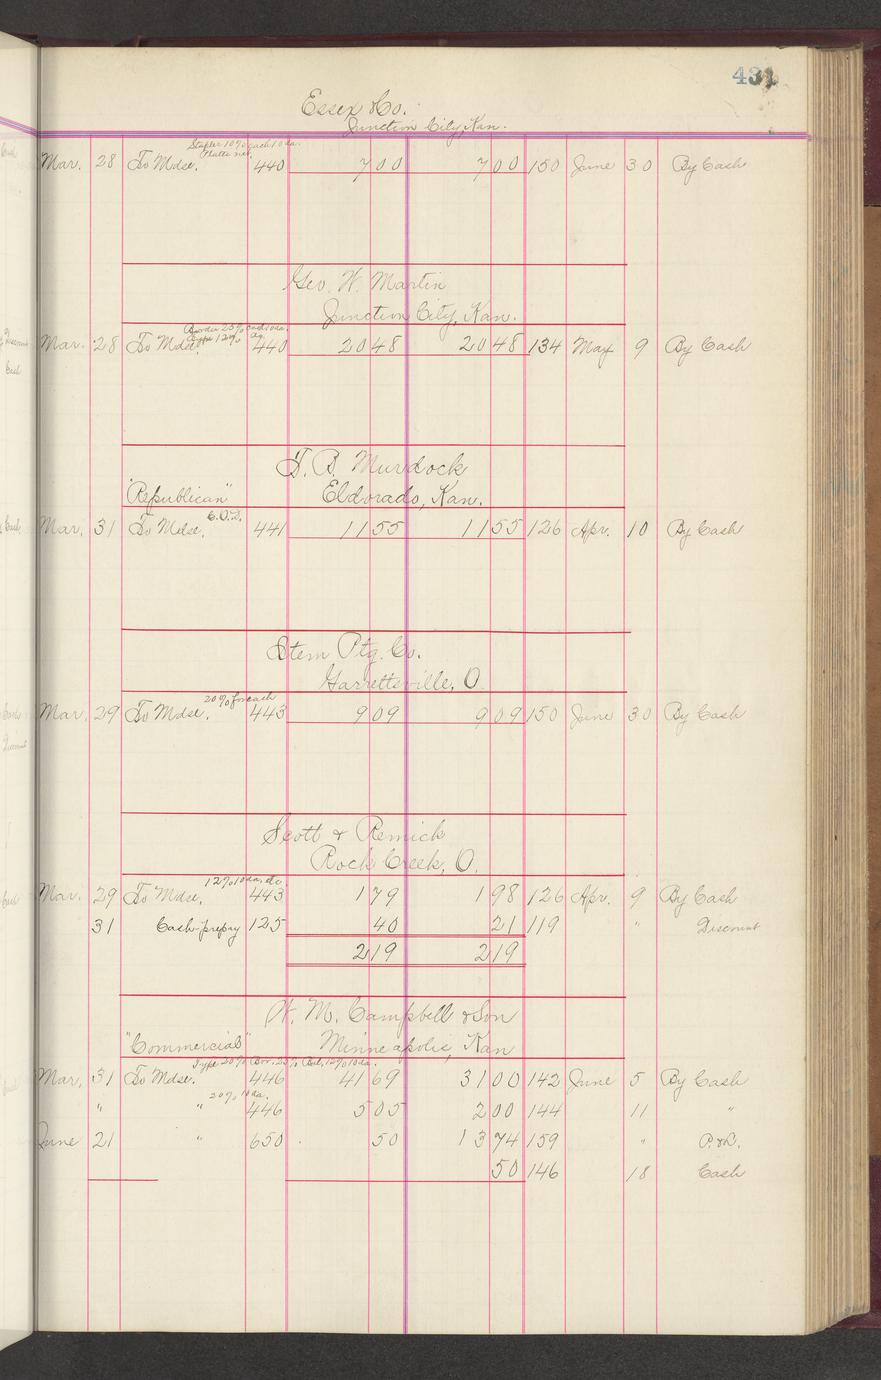 431
Essex & Co.
Junction City, Kan.
Staples 10% cash 10 da.
Plates net.
Mar. 28 To Mdse. 440 7 00 7 00 150 June 30 By Cash
Geo. W. Martin
Junction City, Kan.
Border 25% cash 10 da.
Type 12% do
Mar. 28 To Mdse. 440 20 48 20 48 134 May 9 By Cash
T. B. Murdock
"Republican" Eldorado, Kan.
C.O.D.
Mar. 31 To Mdse. 441 11 55 11 55 126 Apr. 10 By Cash
Stem Ptg. Co.
Garrettsville, O.
20% for cash
Mar. 29 To Mdse. 443 9 09 9 09 150 June 30 By Cash
Scott & Remick
Rock Creek, O.
12% 10 da. dc.
Mar. 29 To Mdse. 443 1 79 1 98 126 Apr. 9 By Cash
31 Cash-prepay 125 40 21 119 " Discount
2 19 2 19
W. M. Campbell & Son
"Commercial" Minneapolis, Kan
Type 20% Bor. 25% Bal. 12% 10 da.
Mar. 31 To Mdse. 446 41 69 31 00 142 June 5 By Cash
20% 10 da.
" " 446 5 05 2 00 144 11 "
June 21 " 650 50 13 74 159 " P. & L.
50 146 18 Cash